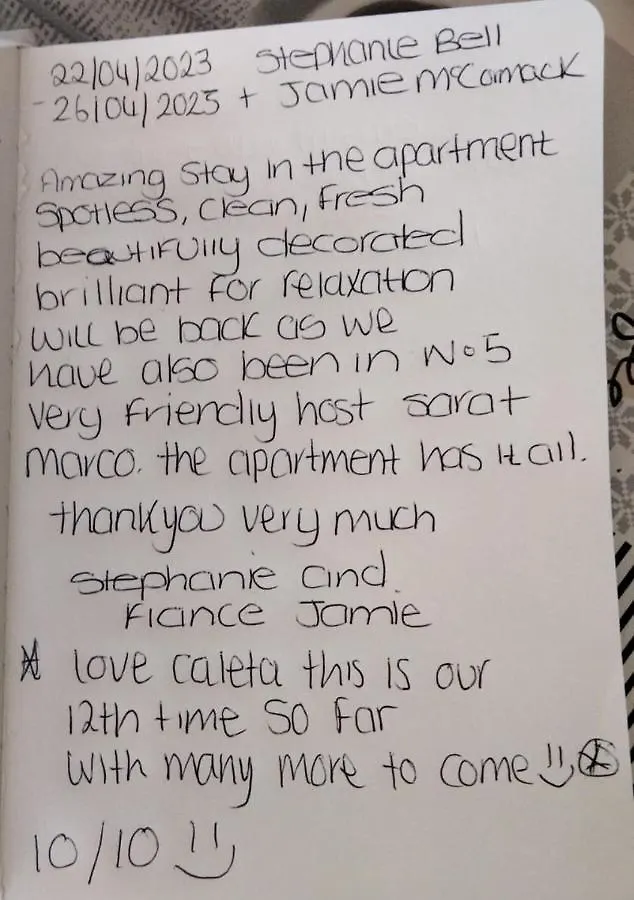 22/04/2023 Stephanie Bell
- 26/04/2023 + Jamie McCormack
Amazing Stay in the apartment
Spotless, Clean, Fresh
beautifully decorated
brilliant for relaxation
will be back as we
have also been in No5
very friendly host sarat
marco. the apartment has it all.
thankyou very much
Stephanie and
Fiance Jamie
* love caleta this is our
12th time so far
with many more to come !!
10/10 !!